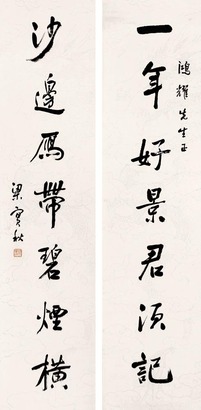 鴻耀先生正
一年好景君須記
沙邊雁帶碧煙橫
梁實秋